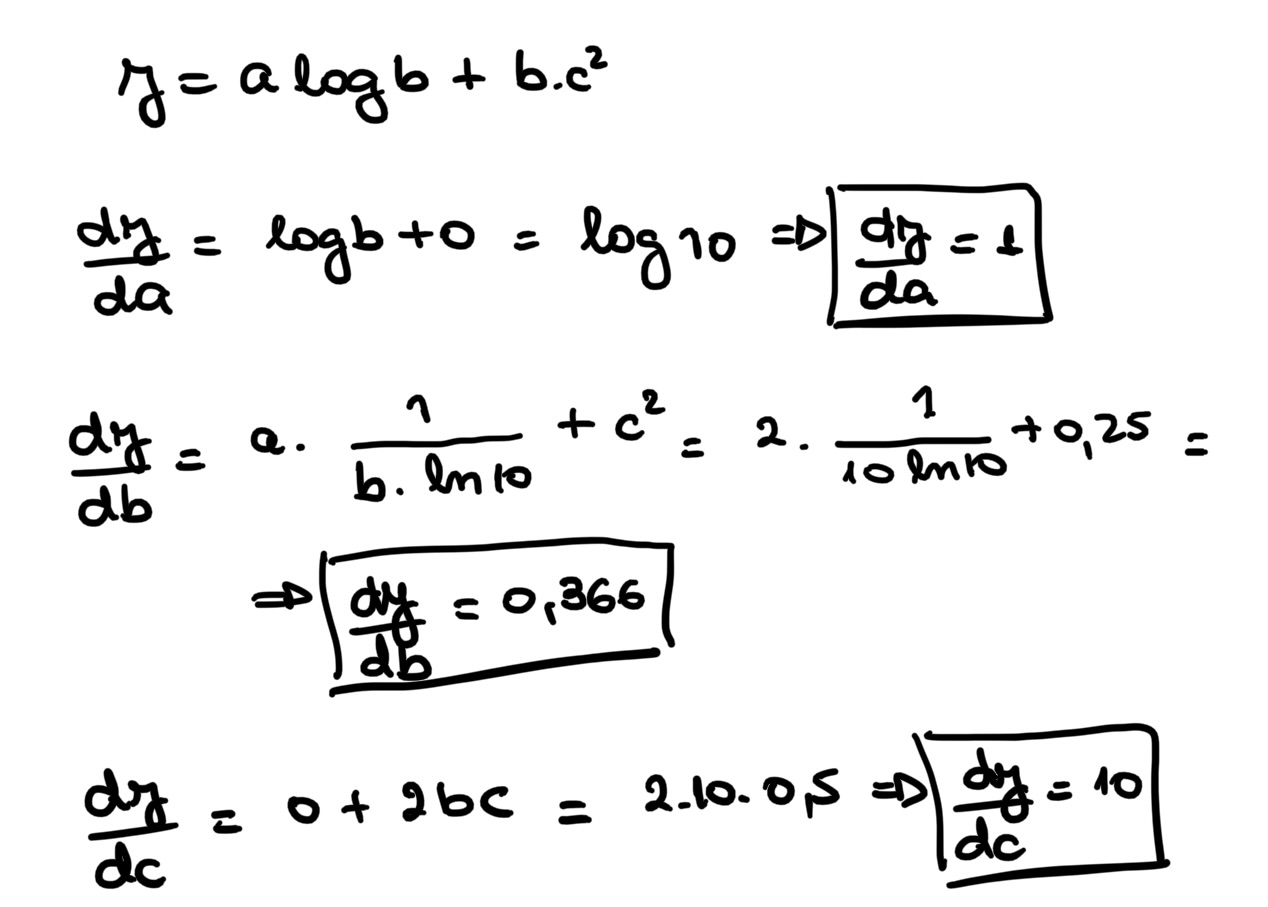 y = a log b + b.c²
dy/da = log b + 0 = log 10 ⇒ dy/da = 1
dy/db = a. 1/(b. ln 10) + c² = 2. 1/(10 ln 10) + 0,25 =
⇒ dy/db = 0,366
dy/dc = 0 + 2bc = 2.10.0,5 ⇒ dy/dc = 10